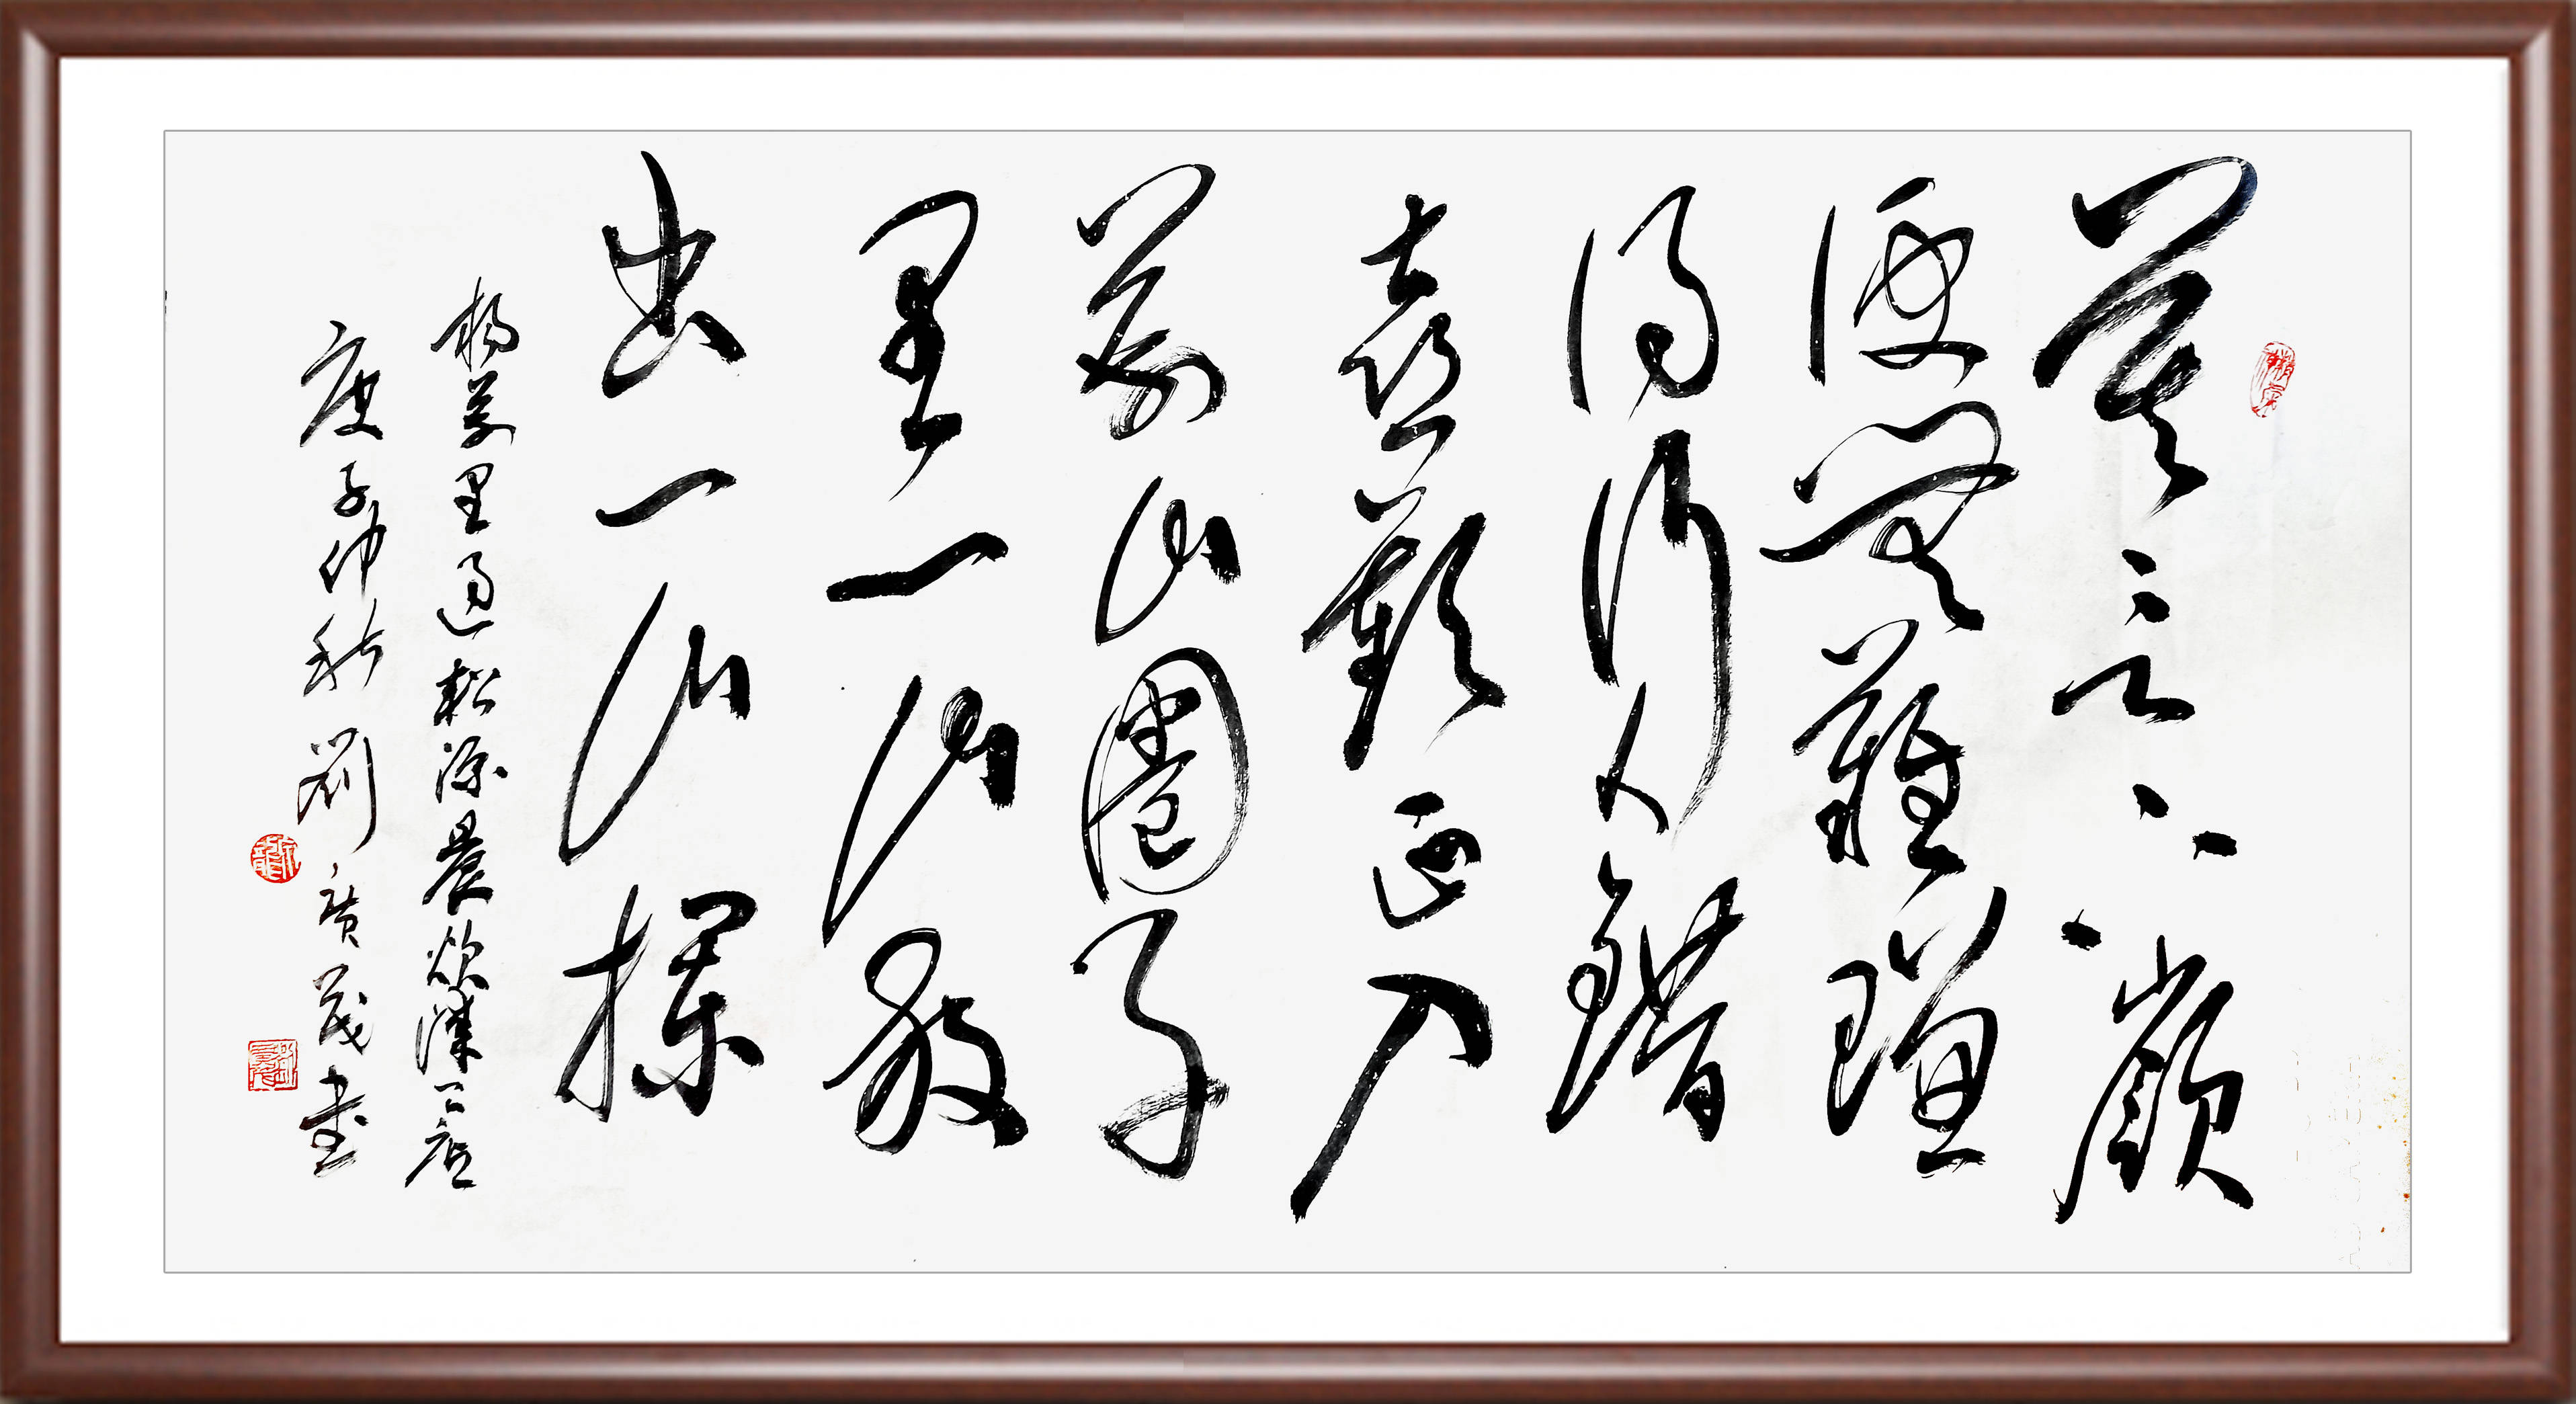 莫言下嶺
便無難賺
得行人錯
喜歡正入
萬山圈子
里一山放
出一山攔
楊萬里過松源晨炊漆公店
庚子仲秋劉廣茂書